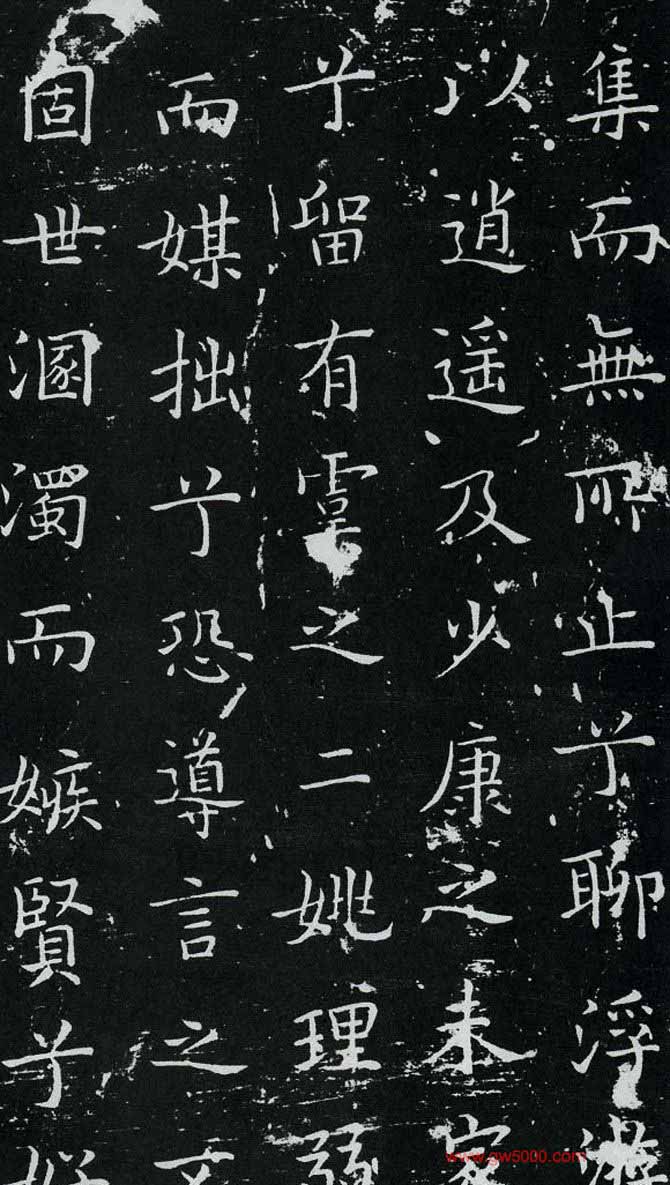 集而無所止兮聊浮游
以逍遥及少康之未家
兮留有虞之二姚理弱
而媒拙兮恐導言之不
固世溷濁而嫉賢兮好
www.gw5000.com